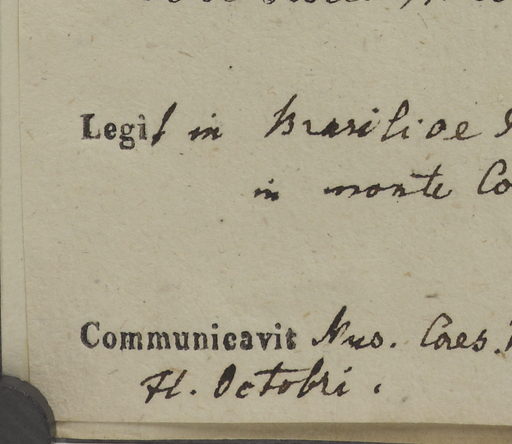 Legit in Brasiliae
in monte Co
Communicavit Mus. Caes.
H. Octobri.